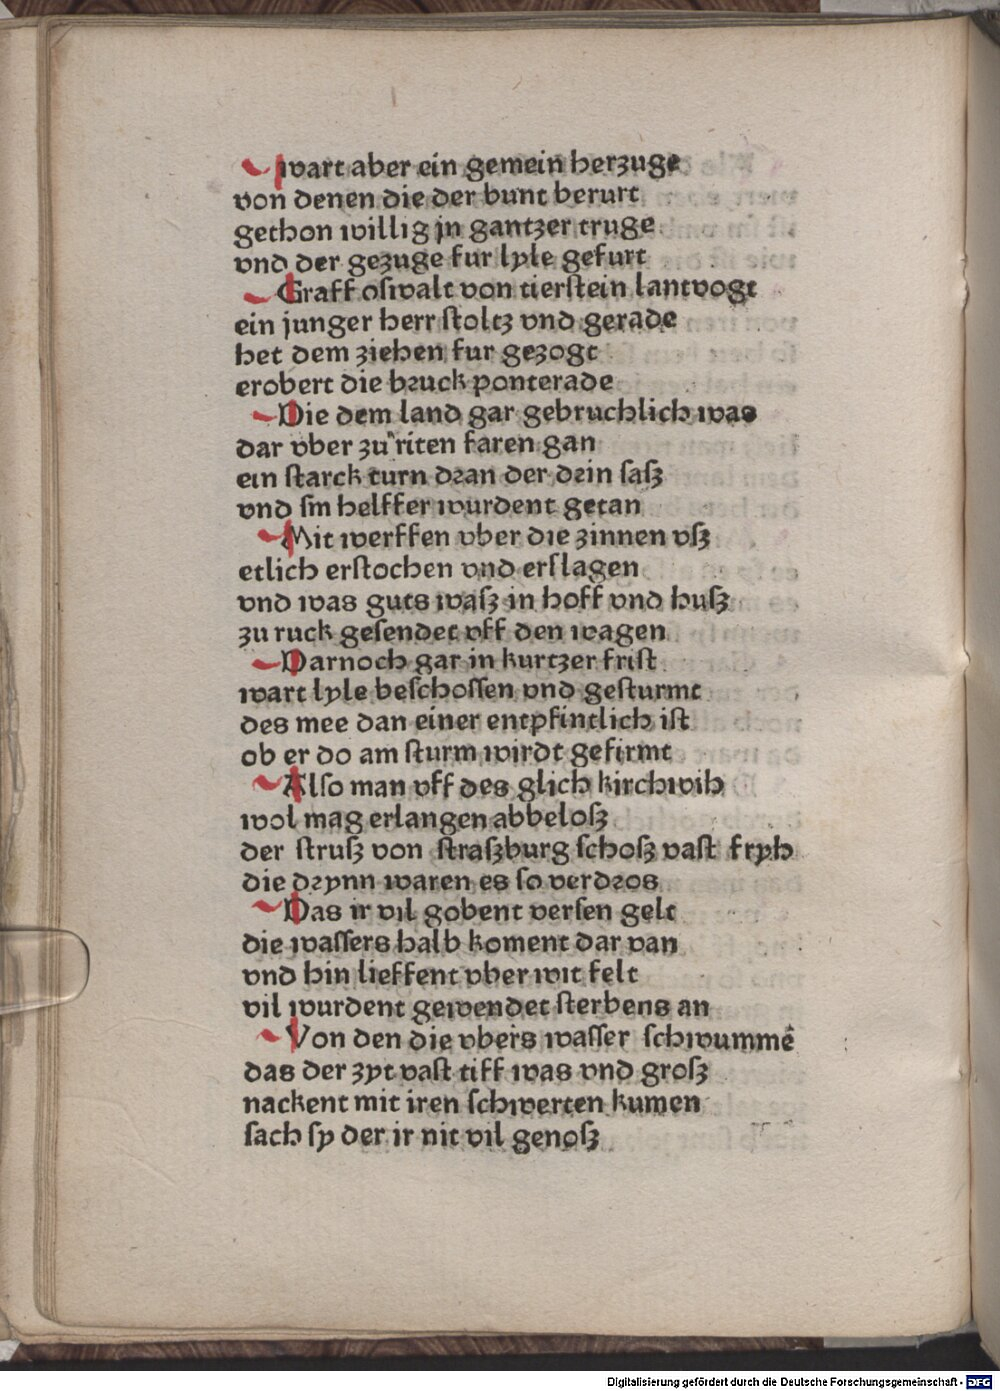 wart aber ein gemein herzuge
von denen die der bunt berurt
gethon willig jn gantzer truge
vnd der gezuge fur lyle gefurt
Graff oswalt von tierstein lantvogt
ein junger herr stoltz vnd gerade
het dem ziehen fur gezogt
erobert die bruck ponterade
Die dem land gar gebruchlich was
dar vber zuͦ riten faren gan
ein starck turn dran der drin sasz
vnd sin helffer wurdent getan
Mit werffen vber die zinnen vsz
etlich erstochen vnd erslagen
vnd was guts wasz in hoff vnd husz
zu ruck gesendet vff den wagen
Darnoch gar in kurtzer frist
wart lyle beschossen vnd gesturmt
des mee dan einer entpfintlich ist
ob er do am sturm wirdt gefirmt
Also man vff des glich kirchwih
wol mag erlangen abbelosz
der strusz von straszburg schosz vast fryh
die drynn waren es so verdros
Das ir vil gobent versen gelt
die wassers halb koment dar van
vnd hin lieffent vber wit felt
vil wurdent gewendet sterbens an
Von den die vbers wasser schwummē
das der zyt vast tiff was vnd grosz
nackent mit iren schwerten kumen
sach sy der ir nit vil genosz
Digitalisierung gefördert durch die Deutsche Forschungsgemeinschaft - DFG